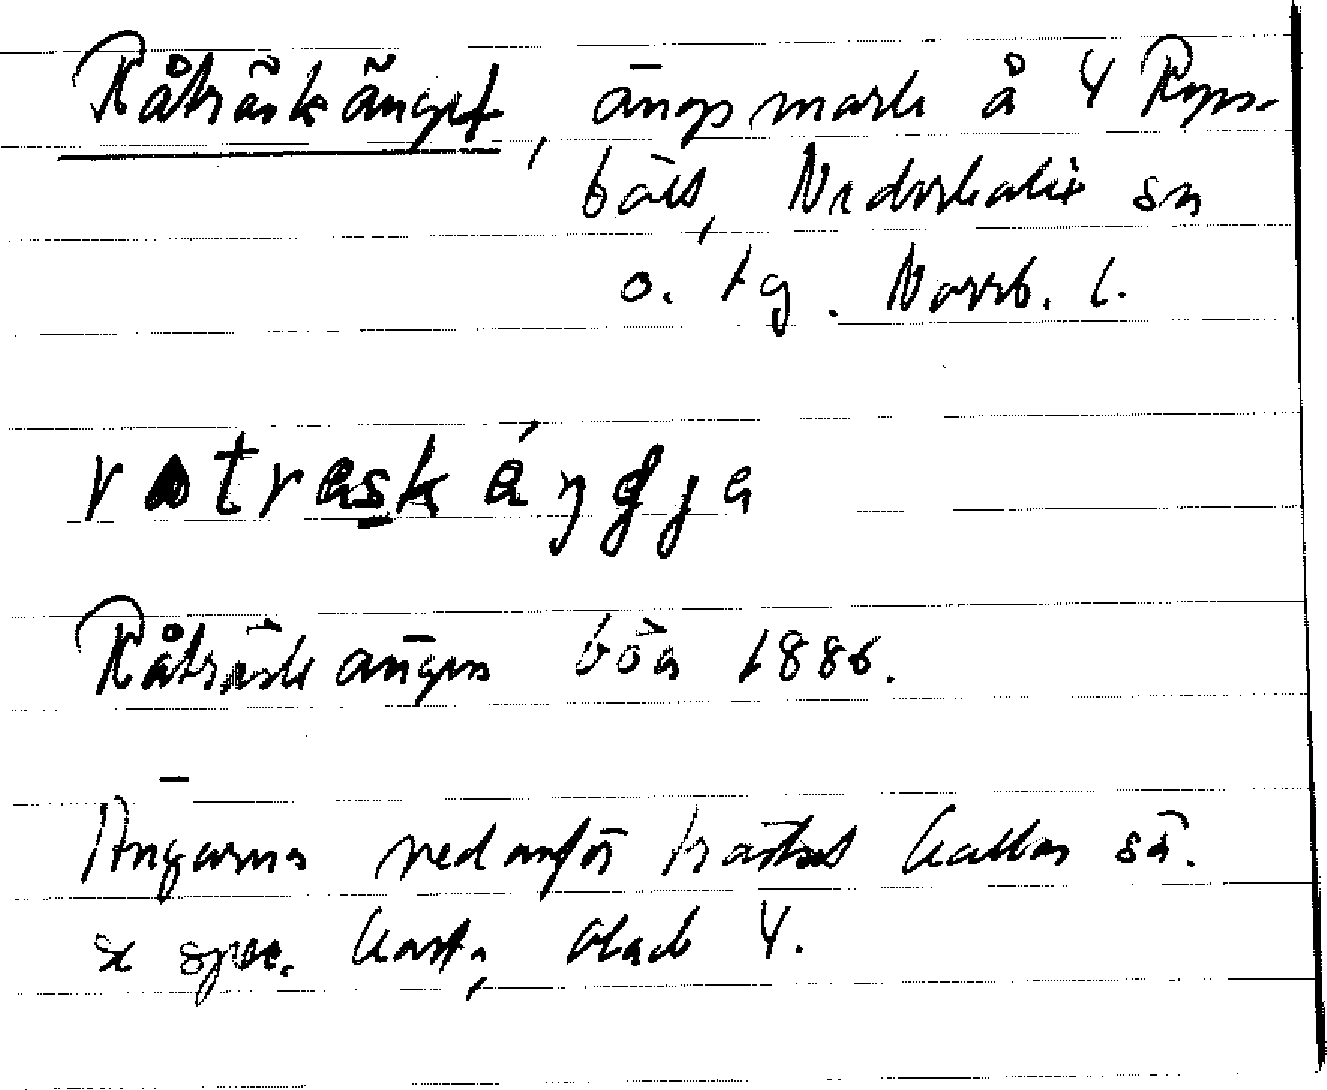 Råträskänget, ängsmark å 4 Ryss-
bält, Nederkalix sn
o. tg. Norrb. l.
ratraskáŋgja
Råträskängen 1886.
Ängarna nedanför träsket kallas så.
se spec. karta, blad 4.